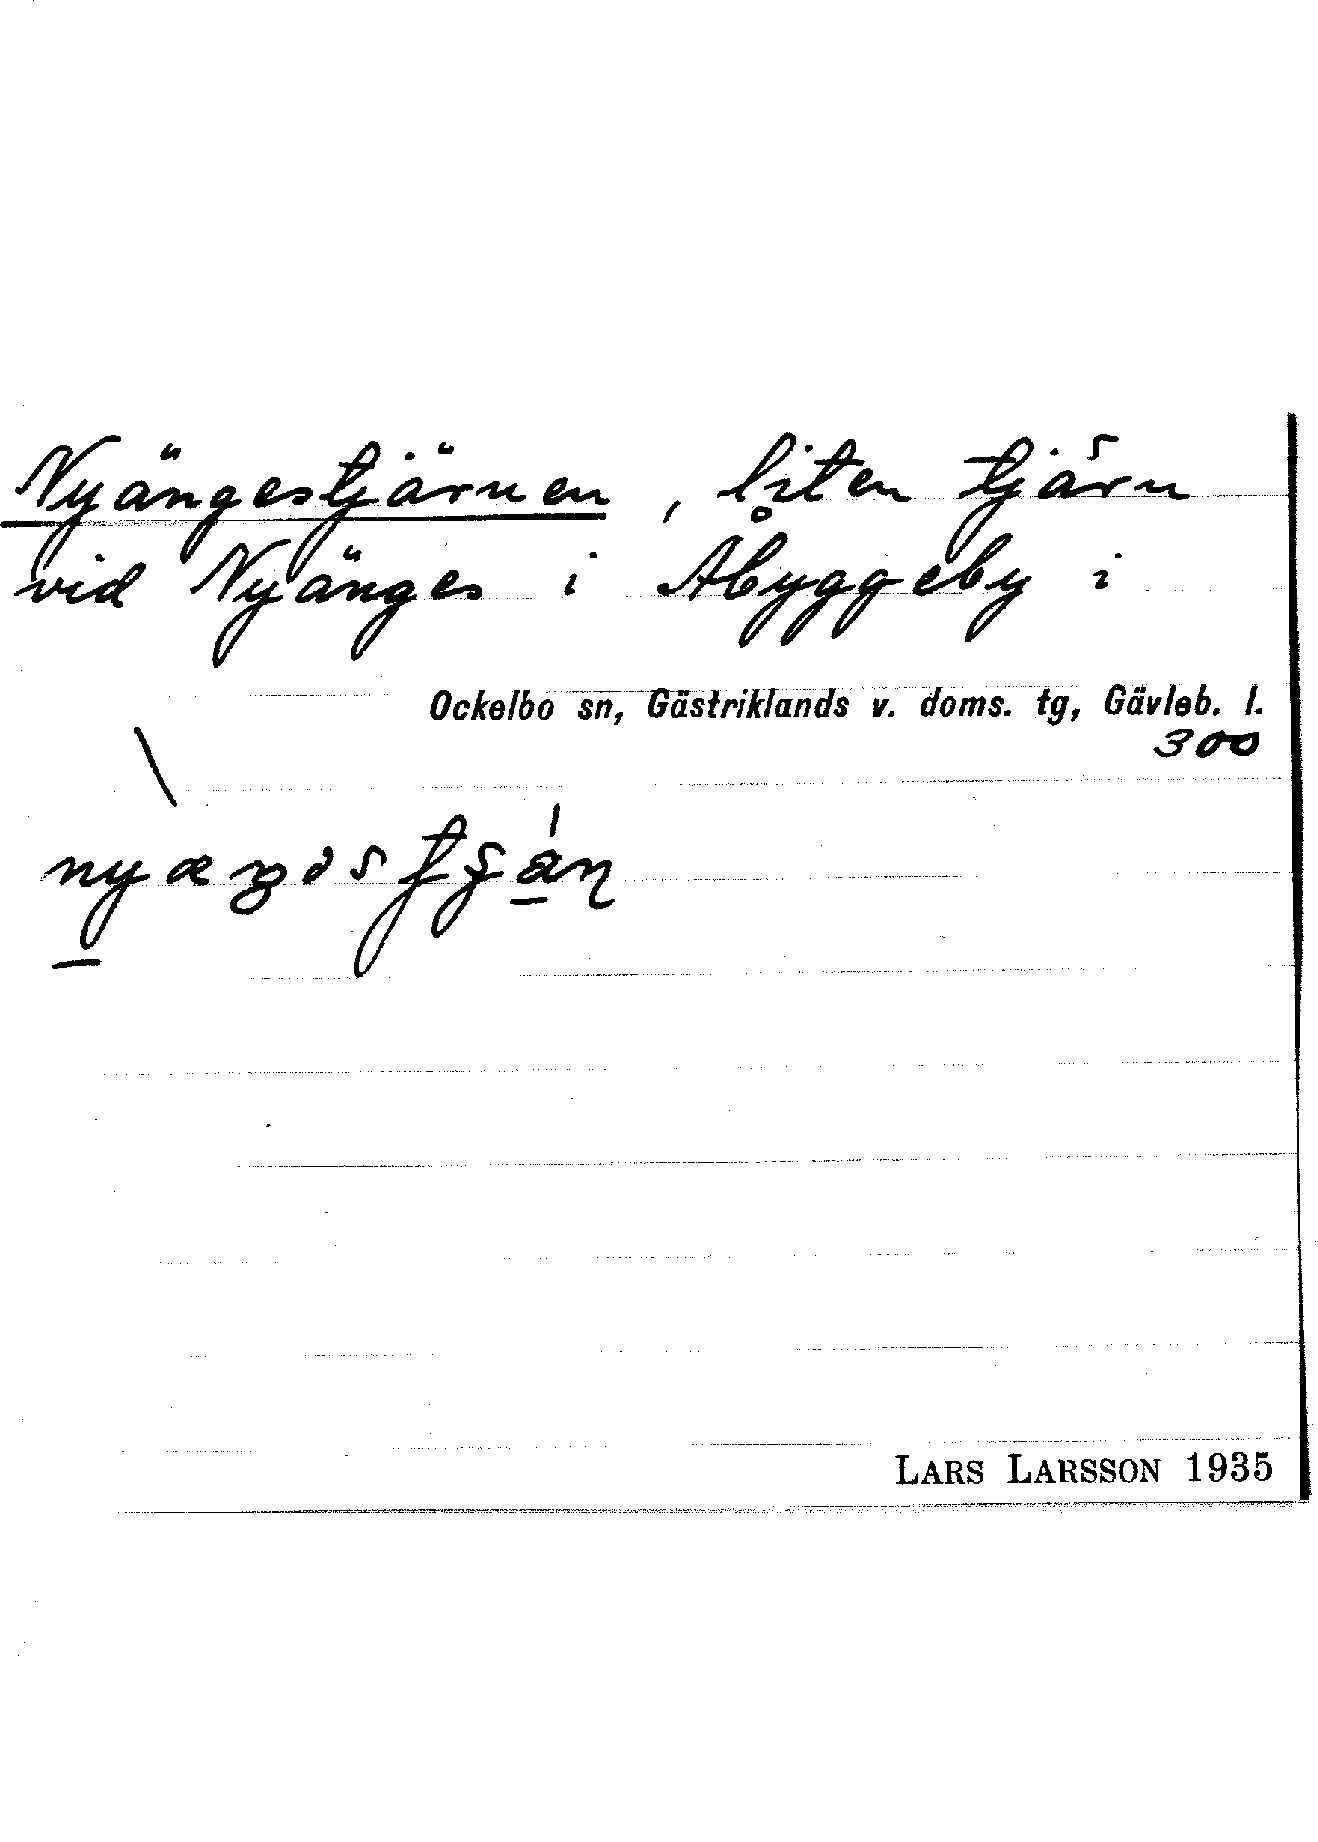 Nyängestjärnen, liten tjärn
vid Nyänges i Åbyggeby i
Ockelbo sn, Gästriklands v. doms. tg, Gävleb. l.
300
LARS LARSSON 1935